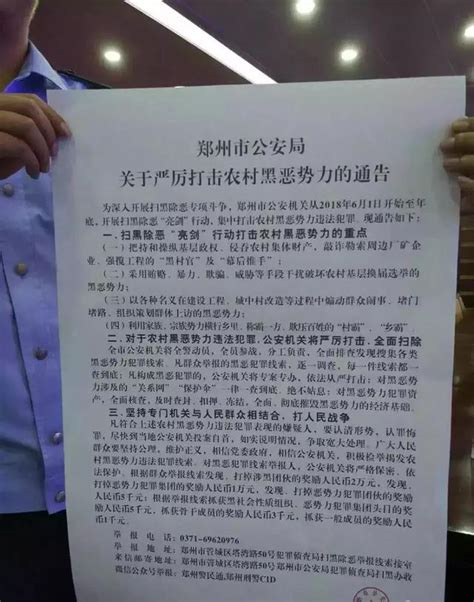 郑州市公安局
关于严厉打击农村黑恶势力的通告
为深入开展扫黑除恶专项斗争，郑州市公安机关从2018年6月1日开始至年
底，开展扫黑除恶“亮剑”行动，集中打击农村黑恶势力违法犯罪。现通告如下：
一、扫黑除恶“亮剑”行动打击农村黑恶势力的重点
（一）把持和操纵基层政权、侵吞农村集体财产，敲诈勒索周边厂矿企
业、强揽工程的“黑村官”及“幕后推手”；
（二）采用贿赂、暴力、欺骗、威胁等手段干扰破坏农村基层换届选举的
黑恶势力；
（三）以各种名义在建设工程、城中村改造等过程中煽动群众闹事、堵门
堵路、组织策划群体上访的黑恶势力；
（四）利用家族、宗族势力横行乡里、称霸一方、欺压百姓的“村霸”、“乡霸”。
二、对于农村黑恶势力违法犯罪，公安机关将严厉打击、全面扫除
全市公安机关将全警动员，全员参战，分工负责，全面排查发现搜集各类
黑恶势力犯罪线索。凡群众举报的黑恶势力犯罪线索，逐一调查，每一件线索都
一查到底；凡构成黑恶犯罪的，公安机关将专案专办，依法从严打击；对黑恶势
力涉及的“关系网”“保护伞”一律一查到底、绝不姑息；对黑恶势力犯罪资
产，全面核查，及时查封、扣押、冻结，全面、彻底摧毁黑恶势力的经济基础。
三、坚持专门机关与人民群众相结合，打人民战争
凡符合上述农村黑恶势力犯罪表现的嫌疑人，要认清形势，认罪悔
罪，尽快到当地公安机关投案自首，如实说明情况，争取宽大处理。广大人民
群众要坚持公理，维护正义，相信党委政府，相信公安机关，积极检举揭发农
村黑恶势力违法犯罪线索。对黑恶犯罪线索举报人，公安机关将严格保密、依
法保护。根据群众举报线索，打掉涉黑团伙的奖励人民币2万元，发现、
打掉恶势力犯罪集团的奖励人民币1万元，发现、打掉恶势力犯罪团伙的奖励
人民币5千元；根据举报线索抓获黑社会性质组织、恶势力犯罪集团头目的奖励
人民币5千元，抓获骨干成员的奖励人民币3千元，抓获一般成员的奖励人民
币1千元。
举 报 电 话：0371-69620976
举 报 地 址：郑州市管城区塔湾路50号犯罪侦查局扫黑除恶举报线索接室
来信邮寄地址：郑州市管城区塔湾路50号郑州市公安局犯罪侦查局扫黑办收
微信公众号举报：郑州警民通，郑州刑警CID